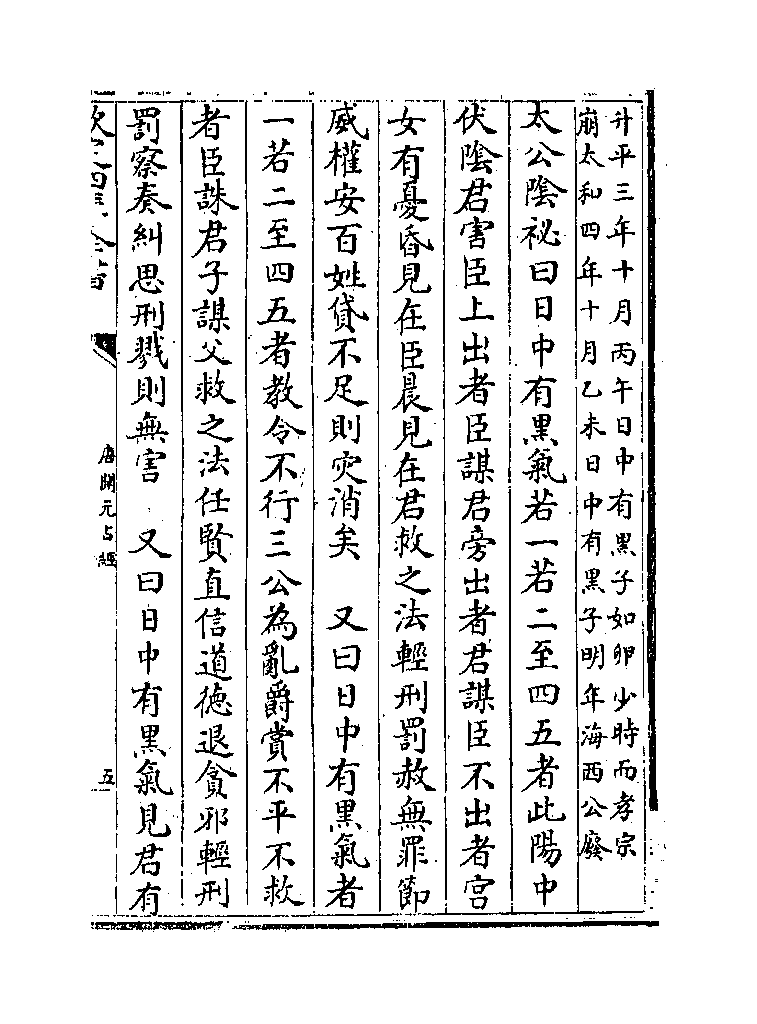 升平三年十月丙午日中有黑子如卵少時而孝宗
崩太和四年十月乙未日中有黑子明年海西公廢
太公陰祕曰日中有黑氣若一若二至四五者此陽中
伏陰君害臣上出者臣謀君旁出者君謀臣不出者宫
女有憂昏見在臣晨見在君救之法輕刑罰赦無罪節
威權安百姓貸不足則灾消矣　又曰日中有黑氣者
一若二至四五者教令不行三公為亂爵賞不平不救
者臣誅君子謀父救之法任賢直信道德退貪邪輕刑
罰察奏糾思刑戮則無害　又曰日中有黑氣見君有
欽定四庫全書
唐開元占經
五